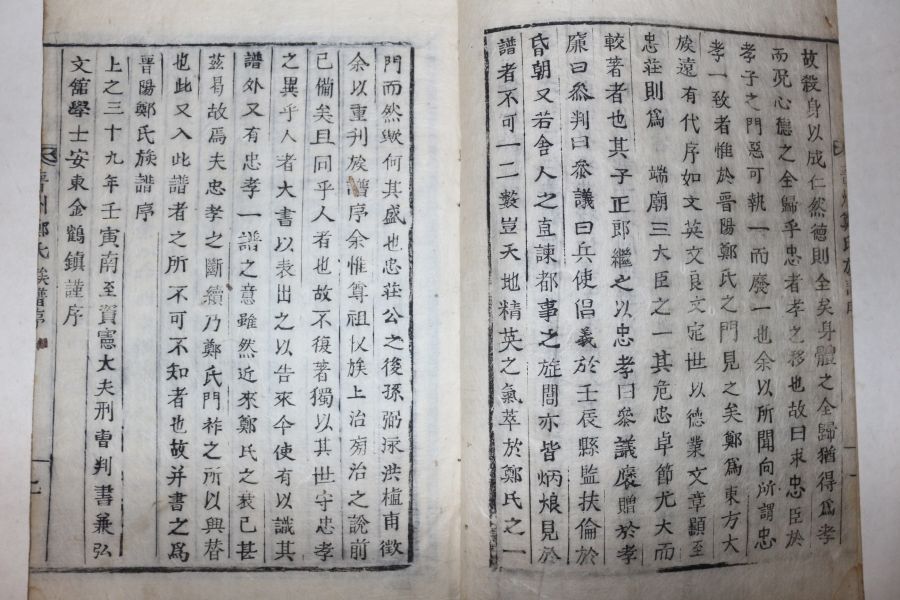 故殺身以成仁然德則全矣身體之全歸猶得爲孝
而况心德之全歸乎忠者孝之移也故曰求忠臣於
孝子之門惡可執一而廢一也余以所聞向所謂忠
孝一致者惟於晋陽鄭氏之門見之矣鄭爲東方大
族遠有代序如文英文良文定世以德業文章顯至
忠莊則爲 端廟三大臣之一其危忠卓節尤大而
較著者也其子正郎繼之以忠孝曰叅議褒贈於孝
廉曰叅判曰叅議曰兵使倡義於壬辰縣監扶倫於
昏朝又若舍人之直諫都事之旌閭亦皆炳烺見於
譜者不可一二數豈天地精英之氣萃於鄭氏之一
門而然歟何其盛也忠莊公之後孫弼永洪櫨甫徵
余以重刋族譜序余惟尊祖收族上治旁治之說前
已備矣且同乎人者也故不復著獨以其世守忠孝
之異乎人者大書以表出之以告來今使有以識其
譜外又有忠孝一譜之意雖然近來鄭氏之衰已甚
玆曷故焉夫忠孝之斷續乃鄭氏門祚之所以興替
也此又入此譜者之所不可不知者也故并書之爲
晋陽鄭氏族譜序
上之三十九年壬寅南至資憲大夫刑曹判書兼弘
文館學士安東金鶴鎭謹序
晋州鄭氏族譜序